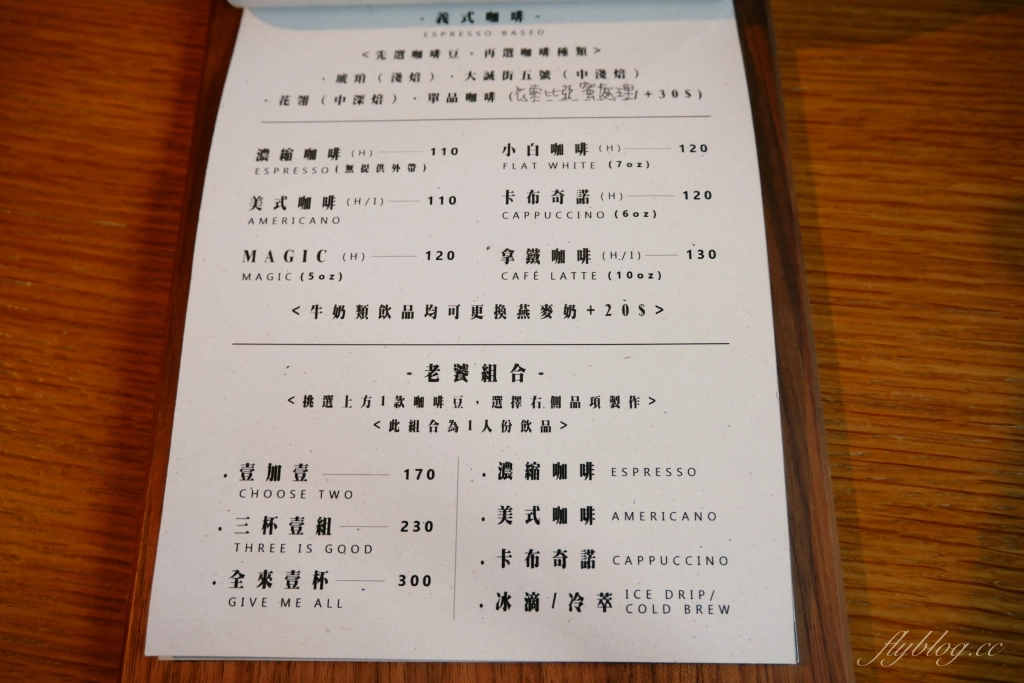 - 義式咖啡 -
ESPRESSO BASED
<先選咖啡豆，再選咖啡種類>
· 琥珀（淺焙） · 大誠街五號（中淺焙）
· 花領（中深焙） · 單品咖啡（衣索比亞 蜜處理/+30$）
濃縮咖啡 (H) 110
ESPRESSO(無提供外帶)
小白咖啡 (H) 120
FLAT WHITE (7oz)
美式咖啡 (H/I) 110
AMERICANO
卡布奇諾 (H) 120
CAPPUCCINO (6oz)
MAGIC (H) 120
MAGIC (5oz)
拿鐵咖啡 (H/I) 130
CAFÉ LATTE (10oz)
<牛奶類飲品均可更換燕麥奶+20$>
- 老饕組合 -
<挑選上方1款咖啡豆，選擇右側品項製作>
<此組合為1人份飲品>
· 壹加壹 170
CHOOSE TWO
· 三杯壹組 230
THREE IS GOOD
· 全來壹杯 300
GIVE ME ALL
· 濃縮咖啡 ESPRESSO
· 美式咖啡 AMERICANO
· 卡布奇諾 CAPPUCCINO
· 冰滴/冷萃 ICE DRIP/
COLD BREW
flyblog.cc